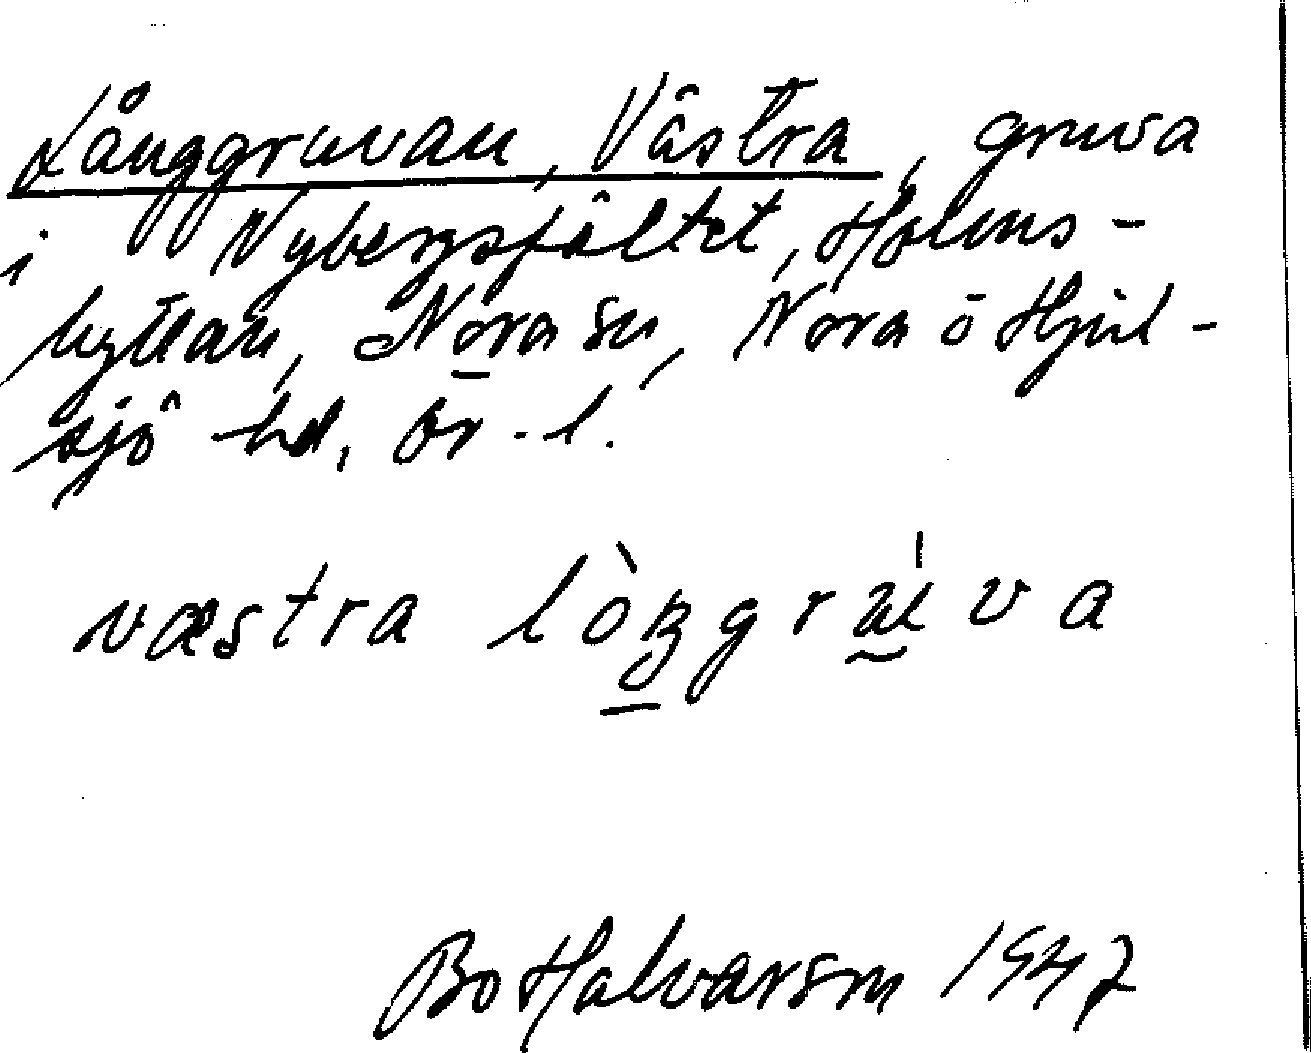 Långgruvan, Västra, gruva
i Nybergsfältet, Holms-
hyttan, Nora sn, Nora o Hjul-
sjö hd, Ör. l.
væstra
Bo Halvarson 1947